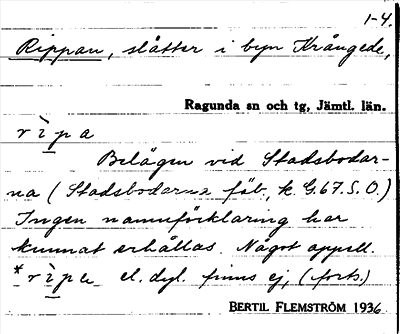 1-4.
Rippan, slåtter i byn Krångede,
Ragunda sn och tg, Jämtl. län.
rìpa
Belägen vid Stadsbodar-
na (Stadsbodarna fäb., k. G.67.S.O.)
Ingen namnförklaring har
kunnat erhållas. Något appell.
*rìpa el. dyl. finns ej, (forts.)
BERTIL FLEMSTRÖM 1936